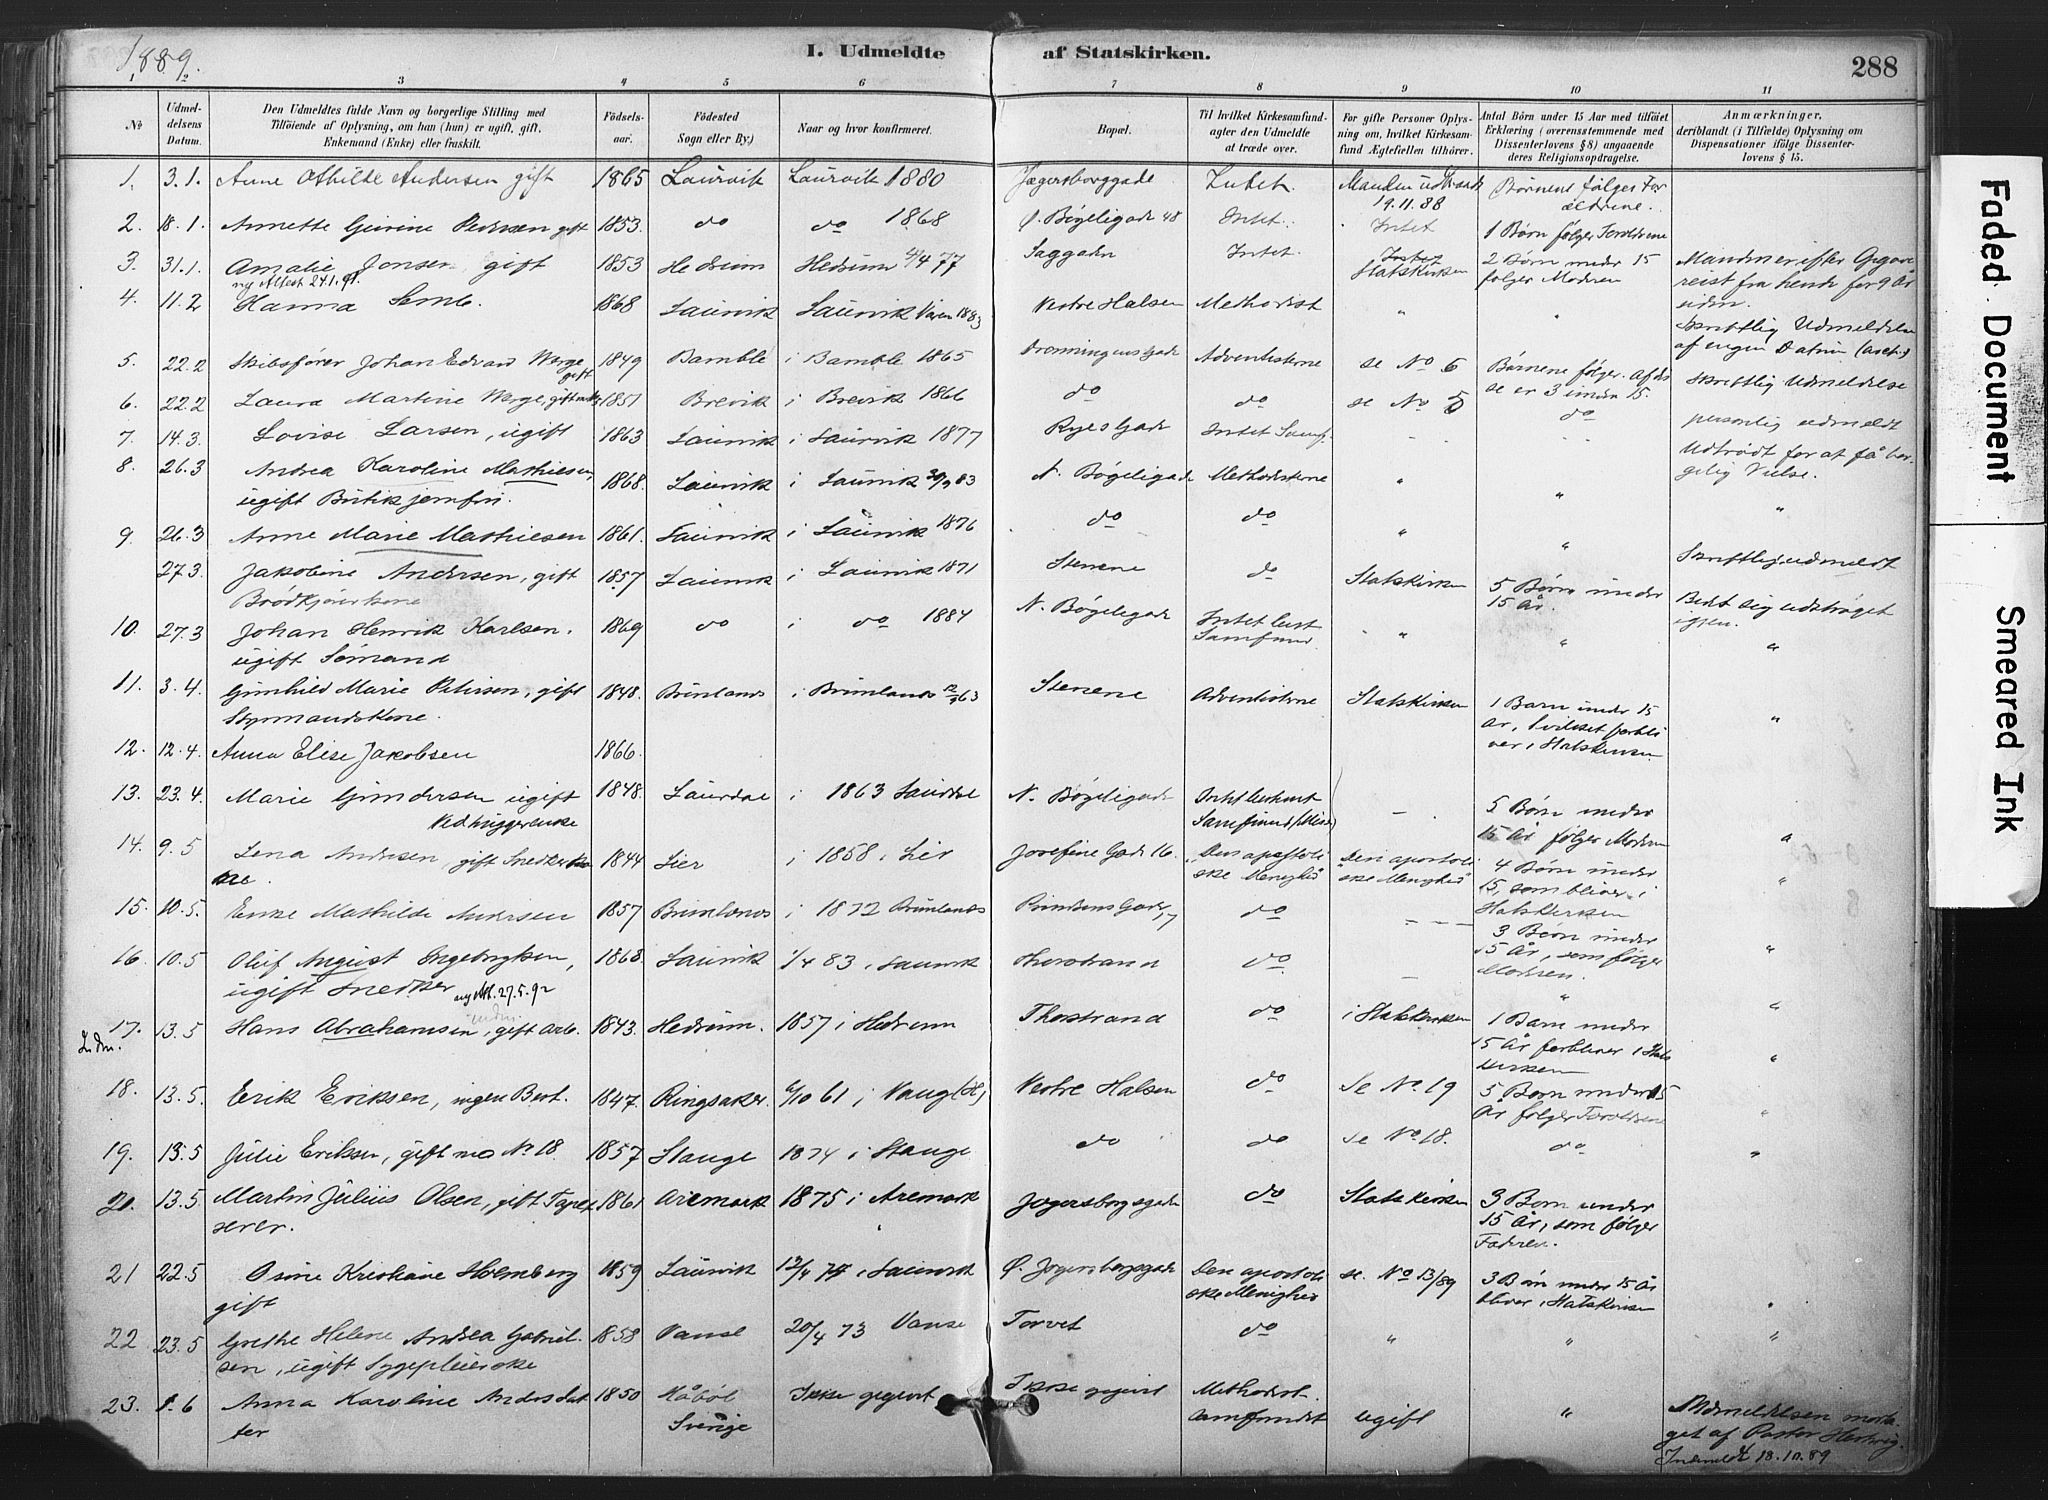 1889.
I. Udmeldte af Statskirken.
288
1 2 3 4 5 6 7 8 9 10 11
№
Udmeldelsens Datum.
Den Udmeldtes fulde Navn og borgerlige Stilling med
Tilføiende af Oplysning, om han (hun) er ugift, gift,
Enkemand (Enke) eller fraskilt.
Fødselsaar.
Fødested
Sogn eller By.)
Naar og hvor konfirmeret.
Bopæl.
Til hvilket Kirkesamfund
agter den Udmeldte
at træde over.
For gifte Personer Oplysning om, hvilket Kirkesamfund Ægtefællen tilhører.
Antal Børn under 15 Aar med tilføiet
Erklæring (overensstemmende med
Dissenterlovens § 8) angaaende
deres Religionsopdragelse.
Anmærkninger,
deriblandt (i Tilfælde) Oplysning om
Dispensationer ifølge Dissenterlovens § 15.
1. 3.1. Anne Othilde Andersen gift 1865 Laurvik Laurvik 1880 Jægersborggade Intet. Manden udtraadt 19.11.88 Børnene følges Forældrene.
2. 18.1. Annette Gurine Pedersen gift 1853. do do 1868 Ø. Bøgeligade 48 Intet. Intet 1 Børn følger Foreldrene
3. 31.1. Amalie Jonsen gift 1853 Hedrum Hedrum 4/4 77 Saggaden Intet. Statskirken 2 Børn under 15 følger Moderen Manden er efter Opgave reist fra hende for 9 År siden.
ny Attest 24.1.91.
4. 11.2 Hanna Semb. 1868 Laurvik Laurvik Våren 1883 Vestre Halsen Methodist " " Skriftlig Udmeldelse af ingen Datum
5. 22.2 Skibsfører Johan Edvard Werge gift 1849 Bamble i Bamble 1865 Dronningens Gade Adventisterne se No 6 Børnene følger. Af disse er 3 under 15. Skriftlig Udmeldelse
6. 22.2 Laura Martine Werge, gift 1851 Brevik i Brevik 1866 do do se No 5 do
7. 14.3. Lovise Larsen, ugift 1863 Laurvik i Laurvik 1877 Ryes Gade Intet Samf. - - personlig udmeldt
8. 26.3 Andrea Karoline Mathiesen, ugift Butikjomfru. 1868. Laurvik i Laurvik 30/9 83 N. Bøgeligade Methodisterne " " Udtrådt for at få borgelig Vielse.
9. 26.3 Anne Marie Mathiesen 1861. Laurvik i Laurvik 1876 do do " " "
27.3. Jakobine Andersen, gift 1857 Laurvik i Laurvik 1871 Stenene do Statskirken 5 Børn under 15 År. Skriftlig udmeldt
10. 27.3 Johan Henrik Karlsen. ugift Sømand 1869 do i do 1884 N. Bøgeligade Intet Samfund " " Bedt sig udstrøget igjen.
11. 3.4. Gunhild Marie Petersen, gift Styrmandskone. 1848. Brunlanes i Brunlanes 63 Stenene Adventisterne Statskirken 1 Barn under 15 År, i Statskirken "
12. 12.4. Anna Elise Jakobsen 1866.
13. 23.4. Marie Gundersen ugift Vedhuggerenke 1848. Laurdal i 1863 Laurdal N. Bøgeligade Samfund - 5 Børn under 15 År følger Moderen "
14. 9.5 Lena Andersen, gift Snedker 1844 Lier i 1858 i Lier Josefine Gade 16. "Den apostoliske Menighed" "Den apostoliske Menighed" 4 Børn under 15, som bliver i Statskirken "
15. 10.5. Enke Mathilde Andersen 1857 Brunlanes i 1872 Brunlanes Prindsens Gade, 7 do - - - 3 Børn under 15 År, som følger Moderen. "
16. 10.5 Oluf August Ingebrigtsen, ugift Snedker 1868 Laurvik 1/4 83 i Laurvik Thorstrand do - " "
ny Att. 27.5.92
17. 13.5 Hans Abrahamsen, gift Arb. 1843. Hedrum. 1857 i Hedrum Thorstrand do i Statskirken 1 Barn under 15 År forbliver i Statskirken "
Indm.
18. 13.5. Erik Eriksen, ingen Best. 1847. Ringsaker. 6/10 61 i Vang (H) Vestre Halsen do Se No. 19 5 Børn under 15 År følger Foreldrene "
19. 13.5 Julie Eriksen, gift med No 18 1857 Stange 1874 i Stange do do Se No. 18. do "
20. 13.5 Martin Julius Olsen, gift Tapetserer. 1861 Aremark 1875 i Aremark Jægersborgsgade do Statskirken 3 Børn under 15 År, som følger Faderen.
21 22.5 Osine Kristiane Holmberg gift 1859 Laurvik 12/4 74 i Laurvik Ø. Jegersborgsgade Den apostoliske Menighed se. No 13/89 3 Børn under 15 År bliver i Statskirken "
22 23.5 Grethe Helene Andrea Gabrielsen, ugift Sygepleierske 1858 Vanse 20/4 73 Vanse Torvet do " " "
23. 1.6 Anna Karoline Andersdatter 1850 Sverige Ikke opgivet Ikke opgivet Methodistsamfundet ugift " Udmeldelsen modtaget af Pastor Hertwig. Indmeldt 18.10.89
Faded Document
Smeared Ink